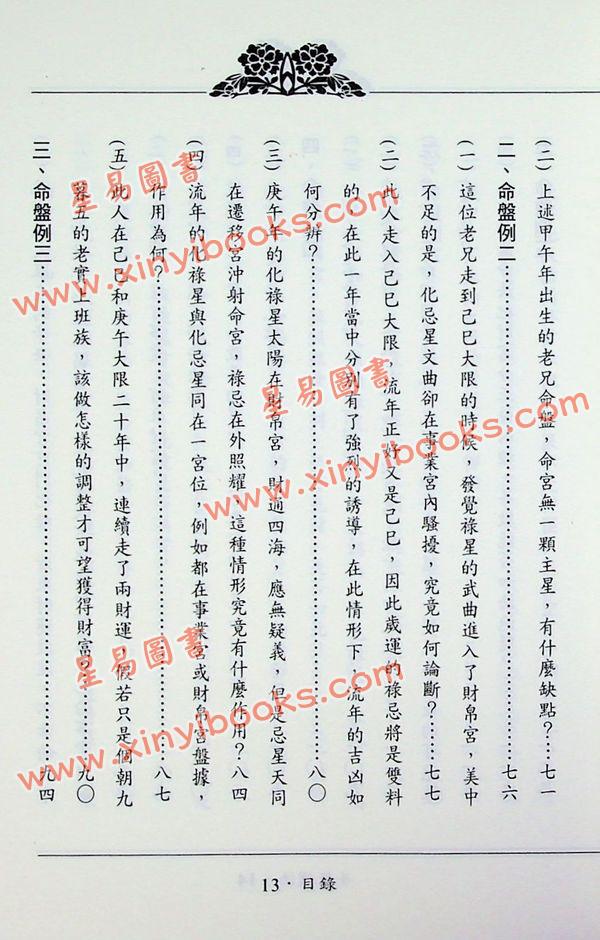 (二)上述甲午年出生的老兄命盤，命宮無一顆主星，有什麼缺點？……七一
二、命盤例二……………………七六
(一)這位老兄走到己巳大限的時候，發覺祿星的武曲進入了財帛宮，美中
不足的是，化忌星文曲卻在事業宮內騷擾，究竟如何論斷？……七七
(二)此人走入己巳大限，流年正好又是己巳，因此歲運的祿忌將是雙料
的，在此一年當中分別有了強烈的誘導，在此情形下，流年的吉凶如
何分辦？……………………八〇
(三)庚午年的化祿星太陽在財帛宮，財通四海，應無疑義，但是忌星天同
在遷移宮沖射命宮，祿忌在外照耀，這種情形究竟有什麼作用？八四
(四)流年的化祿星與化忌星同在一宮位，例如都在事業宮或財帛宮盤據，
作用為何？……………………八七
(五)此人在己巳和庚午大限二十年中，連續走了兩財運，假若只是個朝九
暮五的老實上班族，該做怎樣的調整才可望獲得財富？……九〇
三、命盤例三……………………九四
13·目錄
星易圖書
www.xinyibooks.com
星易圖書
www.xinyibooks.com
星易圖書
www.xinyibooks.com